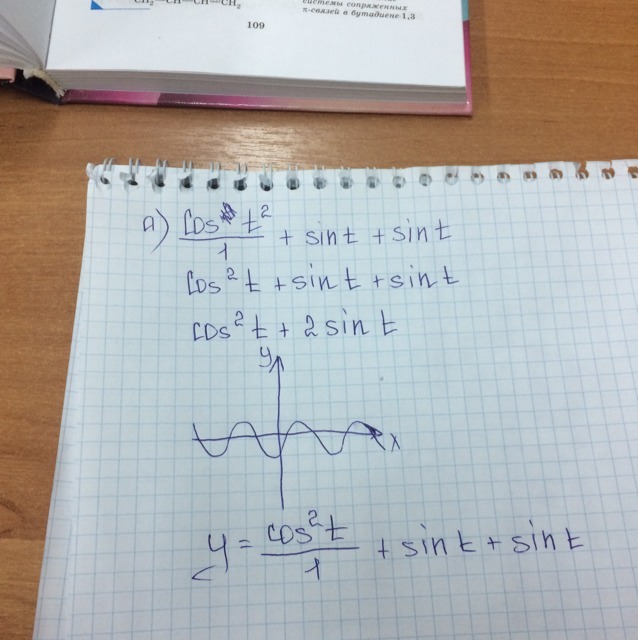 CH₂—CH—CH—CH₂
системы сопряженных
π-связей в бутадиене-1,3
109
а) cos t² / 1 + sin t + sin t
cos² t + sin t + sin t
cos² t + 2 sin t
y
x
y = cos² t / 1 + sin t + sin t